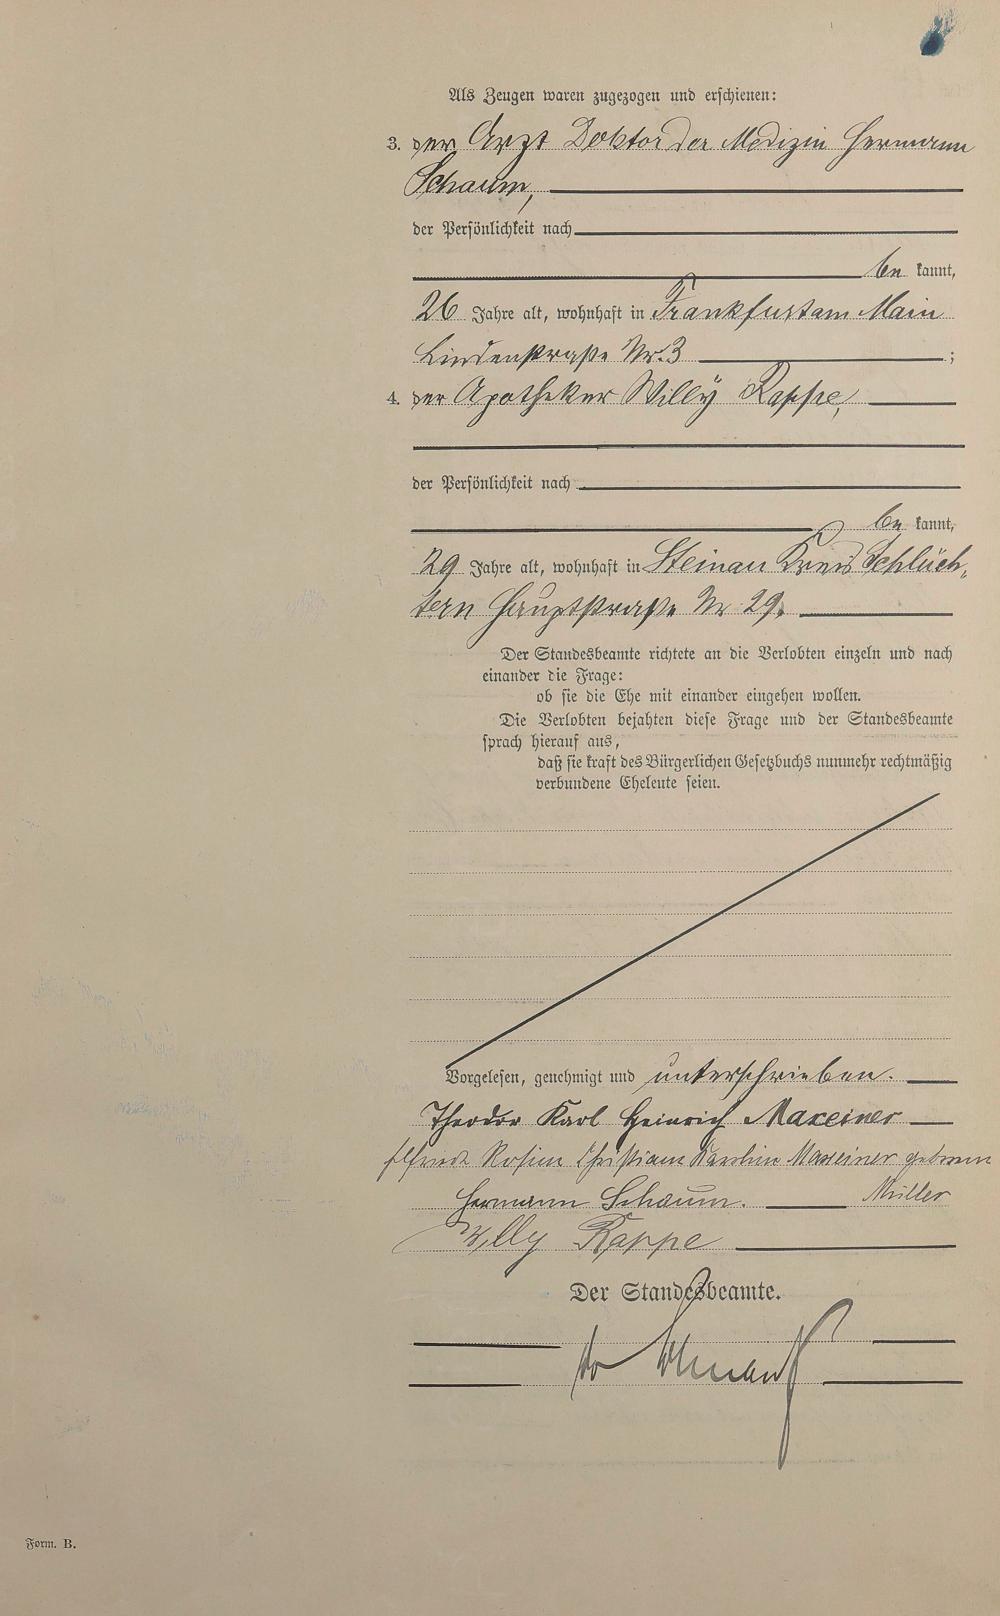 Als Zeugen waren zugezogen und erschienen:
3. der Arzt Doktor der Medizin Hermann
Schaum,
der Persönlichkeit nach
be kannt,
26 Jahre alt, wohnhaft in Frankfurt am Main
Lindenstraße Nr. 3 ;
4. der Apotheker Willy Rappe,
der Persönlichkeit nach
be kannt,
29 Jahre alt, wohnhaft in Steinau Kreis Schlüch-
tern Hauptstraße Nr 29.
Der Standesbeamte richtete an die Verlobten einzeln und nach
einander die Frage:
ob sie die Ehe mit einander eingehen wollen.
Die Verlobten bejahten diese Frage und der Standesbeamte
sprach hierauf aus,
daß sie kraft des Bürgerlichen Gesetzbuchs nunmehr rechtmäßig
verbundene Eheleute seien.
Vorgelesen, genehmigt und unterschrieben.
Theodor Karl Heinrich Maxeiner
Rosine Christiane Karoline Maxeiner geborene
Müller
Hermann Schaum.
Willy Rappe
Der Standesbeamte.
Form. B.